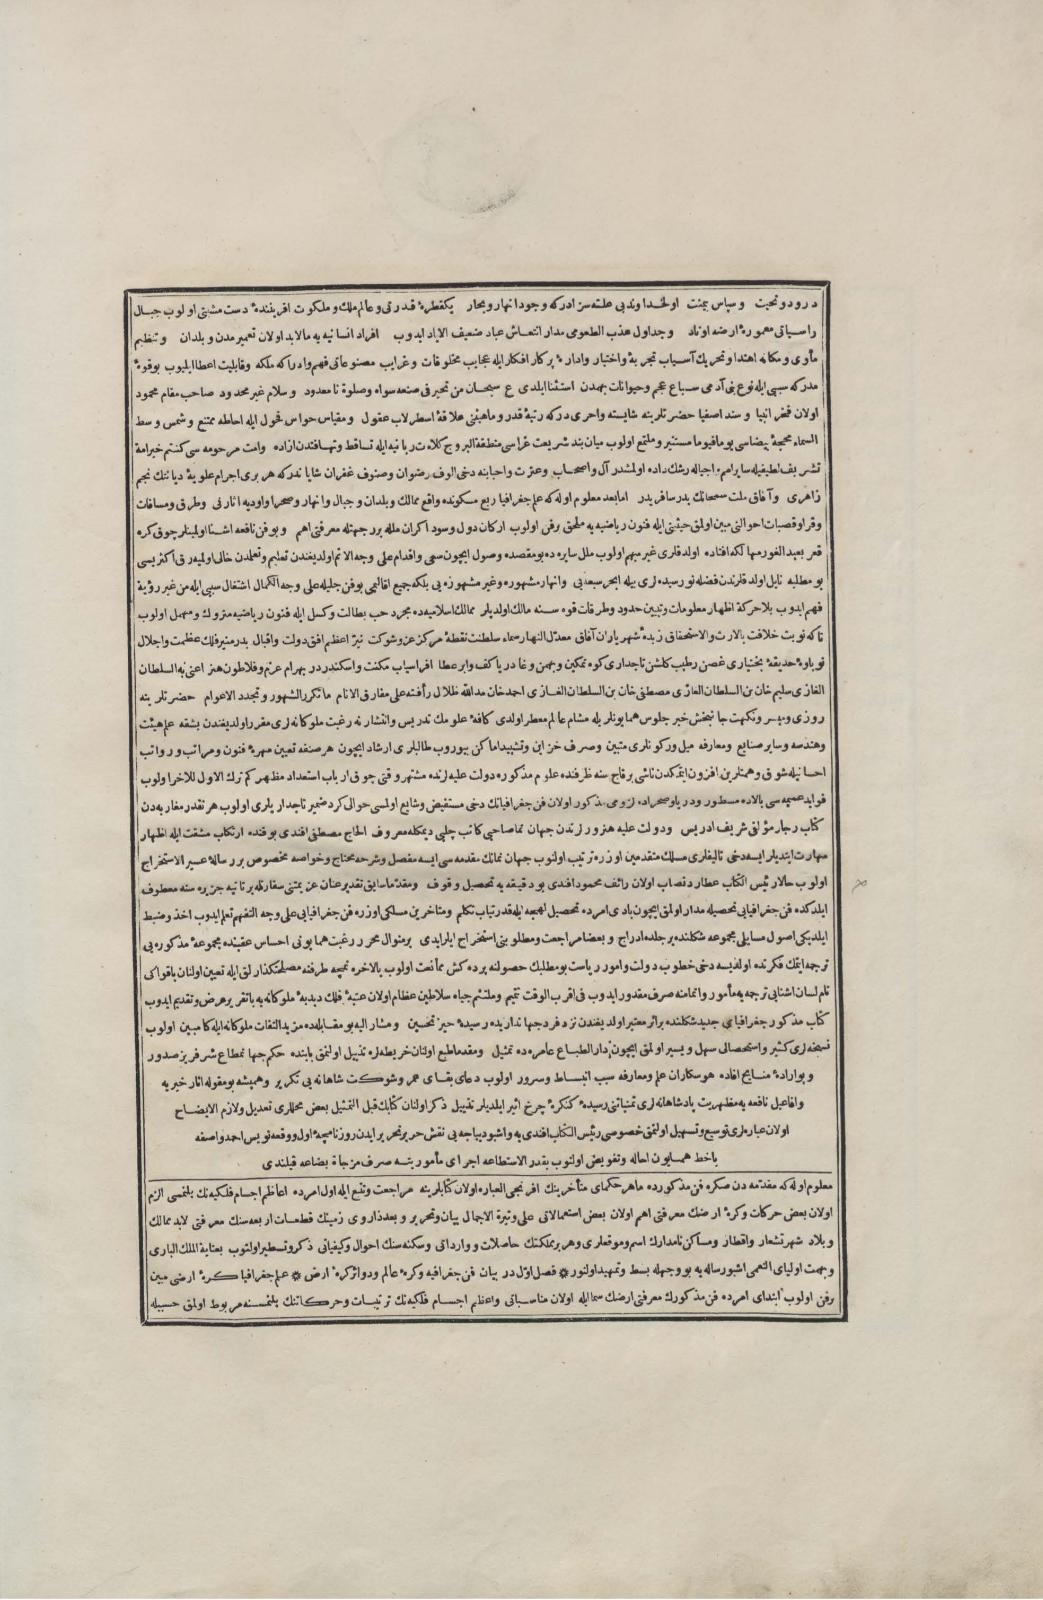 درود وتحيت و سپاس بى‌منت اول خداوند بى علته سزادركه وجود انهار و بحار يكقطرهٔ قدرتى و عالم ملك و ملكوت افريننده‌ٔ دست مشيتى اولوب جبال
راسياتى معمورهٔ ارضه اوتاد و جداول عذب الطعومى مدار انتعاش عباد ضعيف الاياد ايدوب افراد انسانيه يه مالابد اولان تعمير مدن و بلدان و تنظيم
مأوى و مكانه اهتدا و تحريك آسياب تجربهٔ و اختيار و ادارهٔ پركار افكار ايله عجايب مخلوقات و غرايب مصنوعاتى فهم و ادراكه ملكه و قابليت اعطا ايليوب بو قوهٔ
مدركه سببى ايله نوع بنى آدمى سباع عجم و حيوانات بهمدن استثنا ايلدى ع سبحان من تحير فى صنعه سواه و صلوة نامعدود و سلام غير محدود صاحب مقام محمود
اولان مفخر انبيا و سند اصفيا حضرتلرينه شايسته و احرى دركه رتبهٔ قدر و ماهيتى علاقهٔ اسطرلاب عقول و مقياس حواس فحول ايله احاطه ممتنع و شمس وسط
السماء محجهٔ بيضاسى يوما فيوما مستنير و ملتمع اولوب ميان بند شريعت غراسى منطقة البروج كلات ربانيه ايله تساقط و تهافتدن ازاده و امت مرحومه سى كنتم خير امة
تشريف لطيفيله سايرامم اجباله رشك داده اولمشدر آل و اصحاب و عترت و احبابنه دخى الوف رضوان و صنوف غفران شايا ندركه هر برى اجرام علويهٔ دياننك نجم
زاهرى و آفاق ملت سمحانك بدر سافريدر امابعد معلوم اوله كه علم جغرافيا ربع مسكونده واقع ممالك و بلدان و جبال و انهار و صحرا و اوديه اثارنى و طرق و مسافات
وقرا و قصبات احوالنى مبين اولمق حيثيتى ايله فنون رياضيه يه ملحق برفن اولوب اركان دول و سوداكران ملله برر جهتله معرفتى اهم و بوفن نافعه اشنا اولمينلر چوق كره
قعر بعيد الغور مهالكه افتاده اولدقلرى غير مبهم اولوب ملل سايره ده بو مقصده وصول ايچون سعى و اقدام على وجه الاتم اولديغندن تعليم و تعلمدن خالى اولميه رق اكثريسى
بو مطلبه نايل اولدقلرندن فضله نورسيده لرى بيله ابحر سبعه‌يى و انهار مشهوره و غير مشهوره‌يى بلكه جميع اقاليمى بوفن جليله على وجه الكمال اشتغال سببى ايله من غير رؤية
فهم ايدوب بلاحركة اظهار معلومات و تبيين حدود و طرقات قوه سنه مالك اولديلر ممالك اسلاميه ده مجرد حب بطالت و كسل ايله فنون رياضيه متروك و مهمل اولوب
تاكه نوبت خلافت بالارث والاستحقاق زبدهٔ شهرياران آفاق معدل النهار سماء سلطنت نقطهٔ مركز عز و شوكت نير اعظم افق دولت و اقبال بدر منير فلك عظمت و اجلال
نوباوهٔ حديقهٔ بختيارى غصن رطيب كلشن تاجدارى كوه تمكين و بهمن وغا دريا كف و ابر عطا افراسياب مكنت و اسكندر در بهرام عزم و فلاطون هنر اعنى به السلطان
الغازى سليم خان بن السلطان الغازى مصطفى خان بن السلطان الغازى احمد خان مدالله ظلال رأفته على مفارق الانام ماتكرر الشهور و تجدد الاعوام حضرتلرينه
روزى و ميسر و نكهت جانبخش خبر جلوس همايونلريله مشام عالم معطر اولدى كافهٔ علومك تدريس و انتشارنه رغبت ملوكانه لرى مقرر اولديغندن بشقه علم هيئت
وهندسه و ساير صنايع و معارفه ميل و ركونلرى متبين و صرف خزاين و تشييد اماكن بيوروب طالبلرى ارشاد ايچون هر صنفه تعيين مهرهٔ فنون و مراتب و رواتب
احسانيله شوق و همتلرين افزون ايتمكدن ناشى برقاچ سنه ظرفنده علوم مذكوره دولت عليه لرنده مشتهر و قتى چوق ارباب استعداد مظهر كم ترك الاول للاخر اولوب
فوايد عميمه سى بالاده مسطور و دريا و صحراده لزومى مذكور اولان فن جغرافيانك دخى مستفيض و شايع اولمسى حوالى كرد ضمير تاجداريلرى اولوب هر نقدر مغاربه دن
كتاب رجار مؤلفى شريف ادريس و دولت عليه هنرورلرندن جهان نما صاحبى كاتب چلبى ديمكله معروف الحاج مصطفى افندى بوفنده ارتكاب مشقت ايله اظهار
مهارت ايتديلر ايسه دخى تاليفلرى مسلك متقدمين اوزره ترتيب اولنوب جهان نمانك مقدمه سى ايسه مفصل و شرحه محتاج و خواصه مخصوص بررسالهٔ عسير الاستخراج
اولوب حالا رئيس الكتاب عطارد نصاب اولان رائف محمود افندى بو دقيقه يه تحصيل وقوف و مقدما سابق تقدير عنان عزيمتنى سفارتله بريتانيه جزيره سنه معطوف
ايلدكده فن جغرافيايى تحصيله مدار اولمق ايچون بادى امرده تحصيل لهجه ايله قدرتياب تكلم و متاخرين مسلكى اوزره فن جغرافيايى على وجه التفهم تعلم ايدوب اخذ و ضبط
ايلديكى اصول مسايلى مجموعه شكلنده بر جلده ادراج و بعضا مراجعت و مطلوبنى استخراج ايلرايدى برمنوال محرر رغبت همايونى احساس عقبنده مجموعهٔ مذكوره‌يى
ترجمه ايتمك فكرنده اولديسه دخى خطوب دولت و امور رياست بو مطلبك حصولنه پرده كش ممانعت اولوب بالاخره نمچه طرفنه مصلحتكذارلق ايله تعيين اولنان ياقواكى
نام لسان اشنايى ترجمه يه مأمور و اتمامنه صرف مقدور ايدوب فى اقرب الوقت تتميم و ملتثم جباه سلاطين عظام اولان عتبهٔ فلك دبدبهٔ ملوكانه يه باتقرير عرض و تقديم ايدوب
كتاب مذكور جغرافياى جديد شكلنده براثر معتبر اولديغندن نزد فرد جهانداريده رسيدهٔ حيز تحسين و مشاراليه بو مقابله ده مزيد التفات ملوكانه ايله كامبين اولوب
نسخه لرى كثير و استحصالى سهل و يسير اولمق ايچون دارالطباعهٔ عامره ده تمثيل و مقدما طبع اولنان خريطه لره تذييل اولنمق بابنده حكم جهانمطاع شرفريز صدور
و بو ارادهٔ منايح افاده هوسكاران علم و معارفه سبب انبساط و سرور اولوب دعاى بقاى عمر و شوكت شاهانه‌يى تكرير و هميشه بو مقوله اثار خيريه
و افاعيل نافعه يه مظهريت پادشاهانه لرى تمنياتنى رسيدهٔ كنكرهٔ چرخ اثير ايلديلر تذييل ذكر اولنان كتابك قبل التمثيل بعض محللرى تعديل و لازم الايضاح
اولان عباره لرى توسيع و تسهيل اولنمق خصوصى رئيس الكتاب افندى يه و اشبو ديباجه‌يى نقش حرير تحرير ايدن روزنامچهٔ اول و وقعه نويس احمد واصفه
باخط همايون احاله و تفويض اولنوب بقدر الاستطاعه اجراى مأموريته صرف مزجاة بضاعه قيلندى
معلوم اوله كه مقدمه دن صكره فن مذكورده ماهر حكماى متأخرينك افرنجى العباره اولان كتابلرينه مراجعت و تتبع ايله اول امرده اعاظم اجسام فلكيه نك بلنمسى الزم
اولان بعض حركات و كرهٔ ارضك معرفتى اهم اولان بعض استعمالاتى على وتيرة الاجمال بيان و تحرير و بعده ذار روى زمينك قطعات اربعه سنك معرفتى لابد ممالك
و بلاد شهرتشعار و اقطار و مساكن نامدارك اسم و موقعلرى و هر بر مملكتك حاصلات و وارداتى و سكنه سنك احوال و كيفياتى ذكر و تسطير اولنوب بعناية الملك البارى
و بهمت اولياى النعمى اشبو رساله يه بو وجهله بسط و تمهيد اولنور * فصل اول در بيان فن جغرافيه و كرهٔ عالم و دوائر كرهٔ ارض * علم جغرافيا كرهٔ ارضى مبين
برفن اولوب ابتداى امرده فن مذكورك معرفتى ارضك سما ايله اولان مناسباتى و اعظم اجسام فلكيه نك ترتيبات و حركاتنك بلنمسنه مربوط اولمق حسبيله